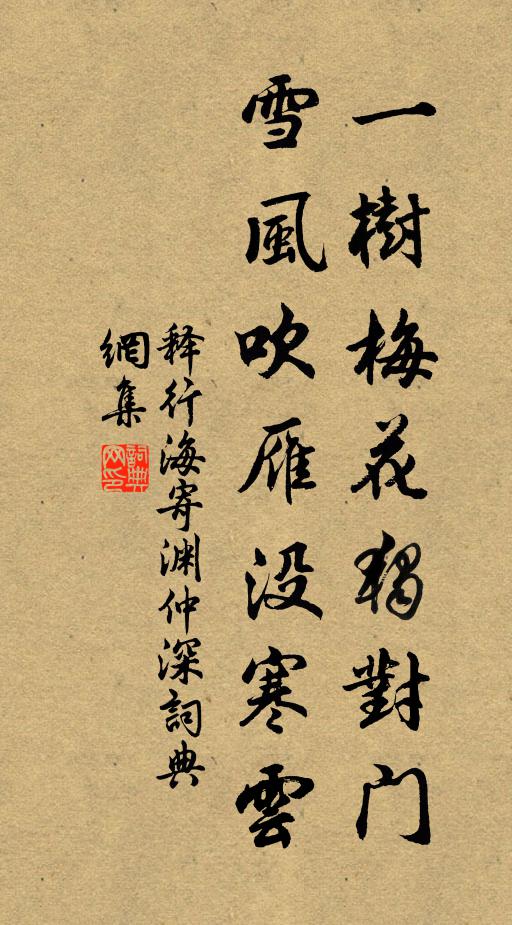 一樹梅花獨對门
雪風吹雁没寒雲
释行海寄渊仲深詞典
網集
詞典网印